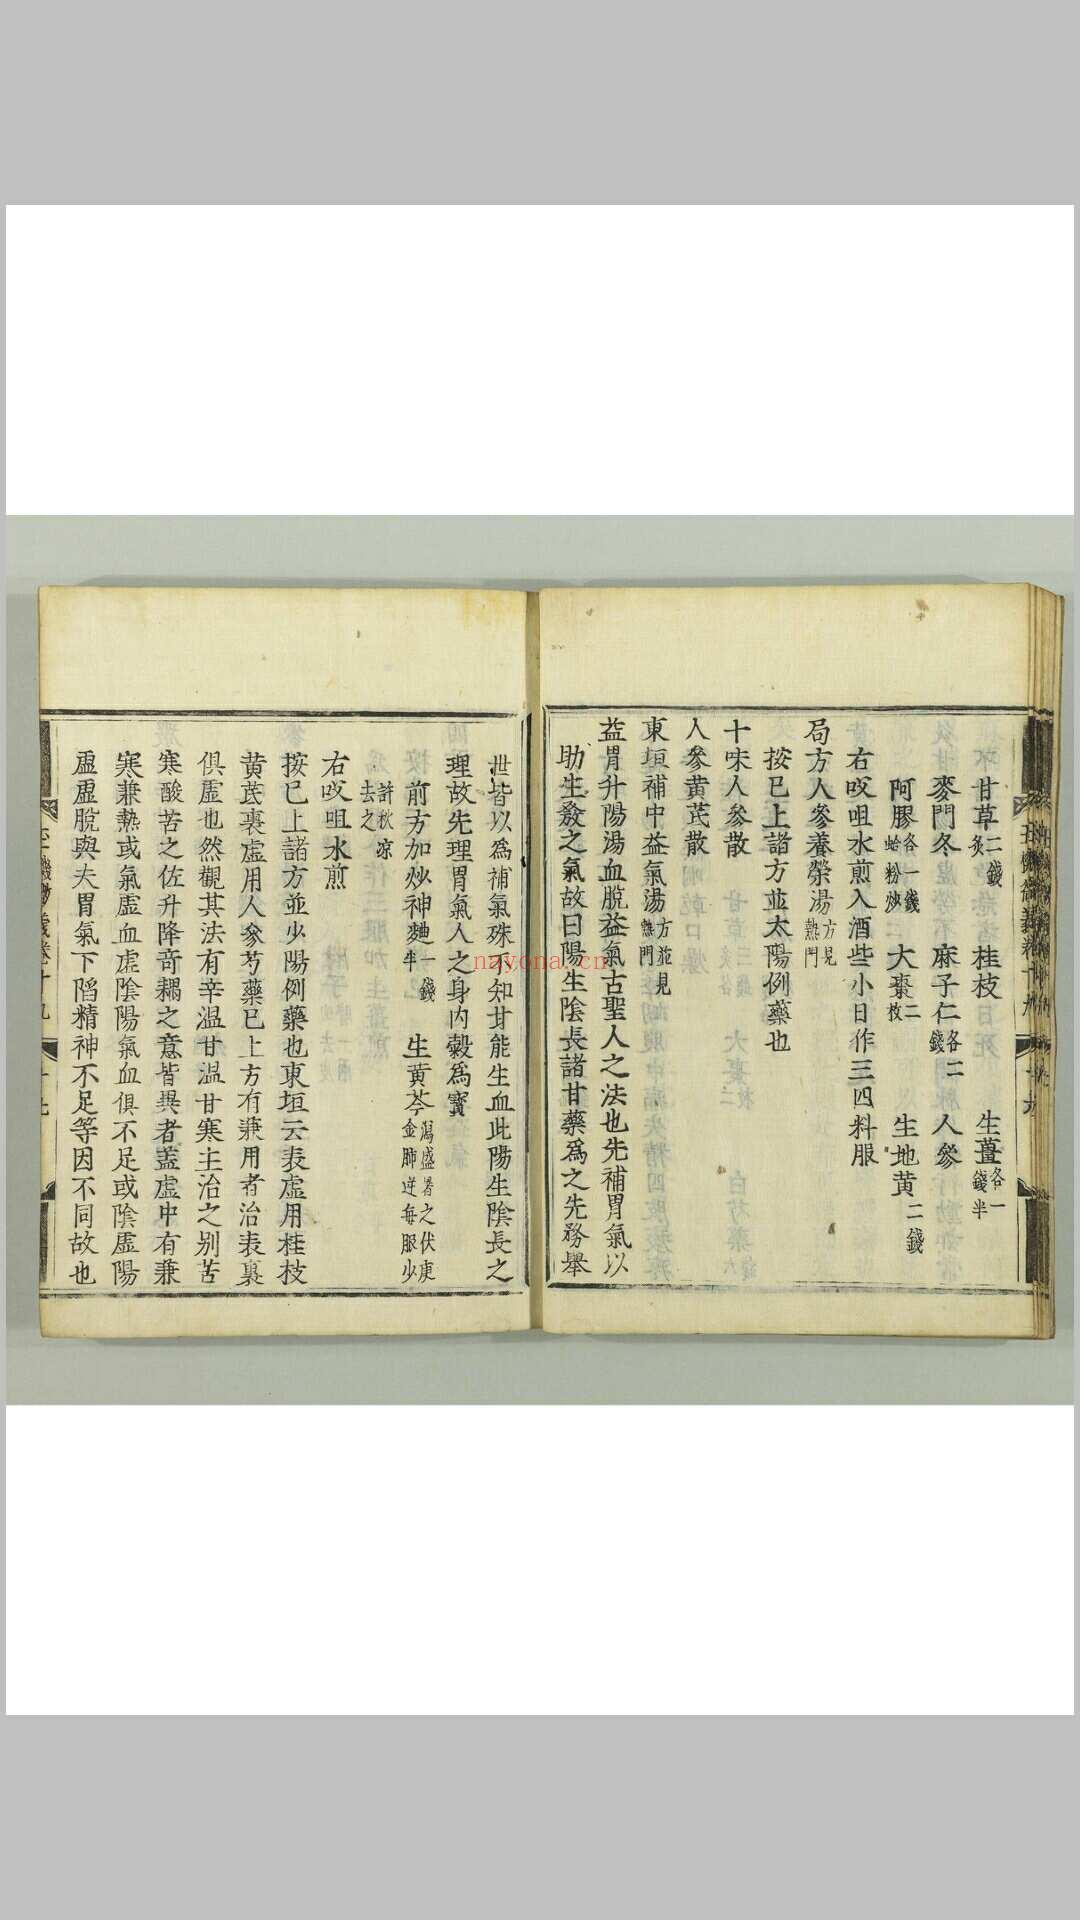 甘草二錢炙 桂枝 生薑各一錢半
麥門冬 麻子仁各二錢 人參
阿膠各一錢蛤粉炒 大棗二枚 生地黃二錢
右㕮咀水煎入酒些小日作三四料服
局方人參養榮湯方見熱門
按已上諸方並太陽例藥也
十味人參散
人參黃芪散
東垣補中益氣湯方並見熱門
益胃升陽湯血脫益氣古聖人之法也先補胃氣以
助生發之氣故曰陽生陰長諸甘藥爲之先務舉
世皆以爲補氣殊不知甘能生血此陽生陰長之
理故先理胃氣人之身內穀爲寳
前方加炒神麯一錢半 生黃芩瀉盛暑之伏庚金肺逆每服少
許秋凉去之
右㕮咀水煎
按已上諸方並少陽例藥也東垣云表虛用桂枝
黃芪裏虛用人參芍藥已上方有兼用者治表裏
俱虛也然觀其法有辛溫甘溫甘寒主治之别苦
寒酸苦之佐升降奇耦之意皆異者葢虛中有兼
寒兼熱或氣虛血虛陰陽氣血俱不足或陰虛陽
虛虛脫與夫胃氣下陷精神不足等因不同故也
玉機微義卷十九
nayona.cn